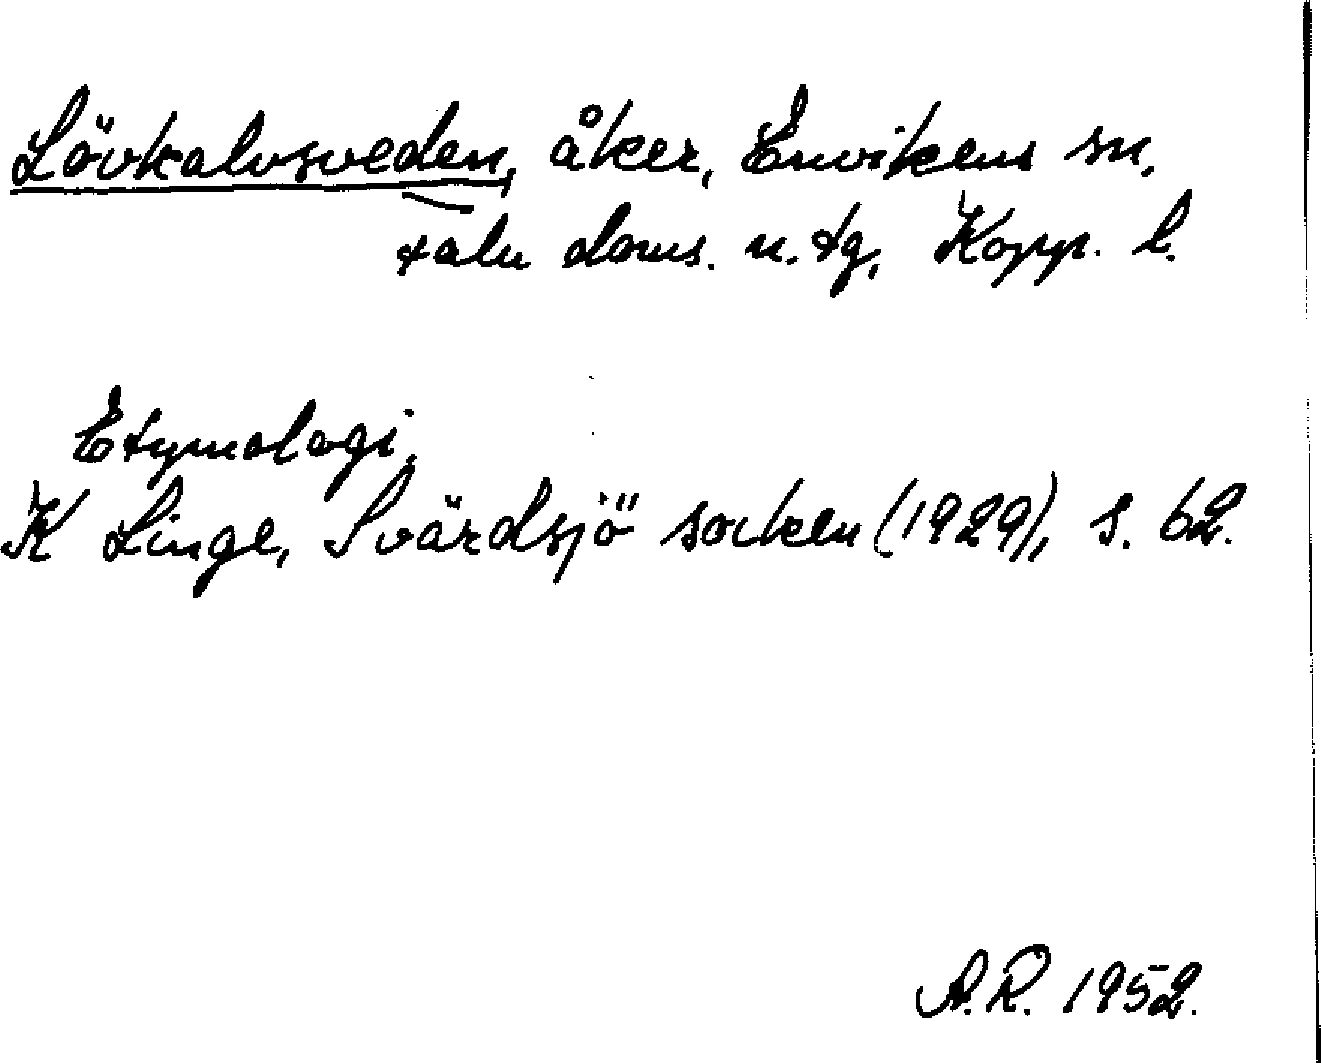 Lövkalvsveden, åker, Envikens sn,
Falu doms. n. tg, Kopp. l.
Etymologi.
K Linge, Svärdsjö socken (1929), s. 62.
A.R. 1952.